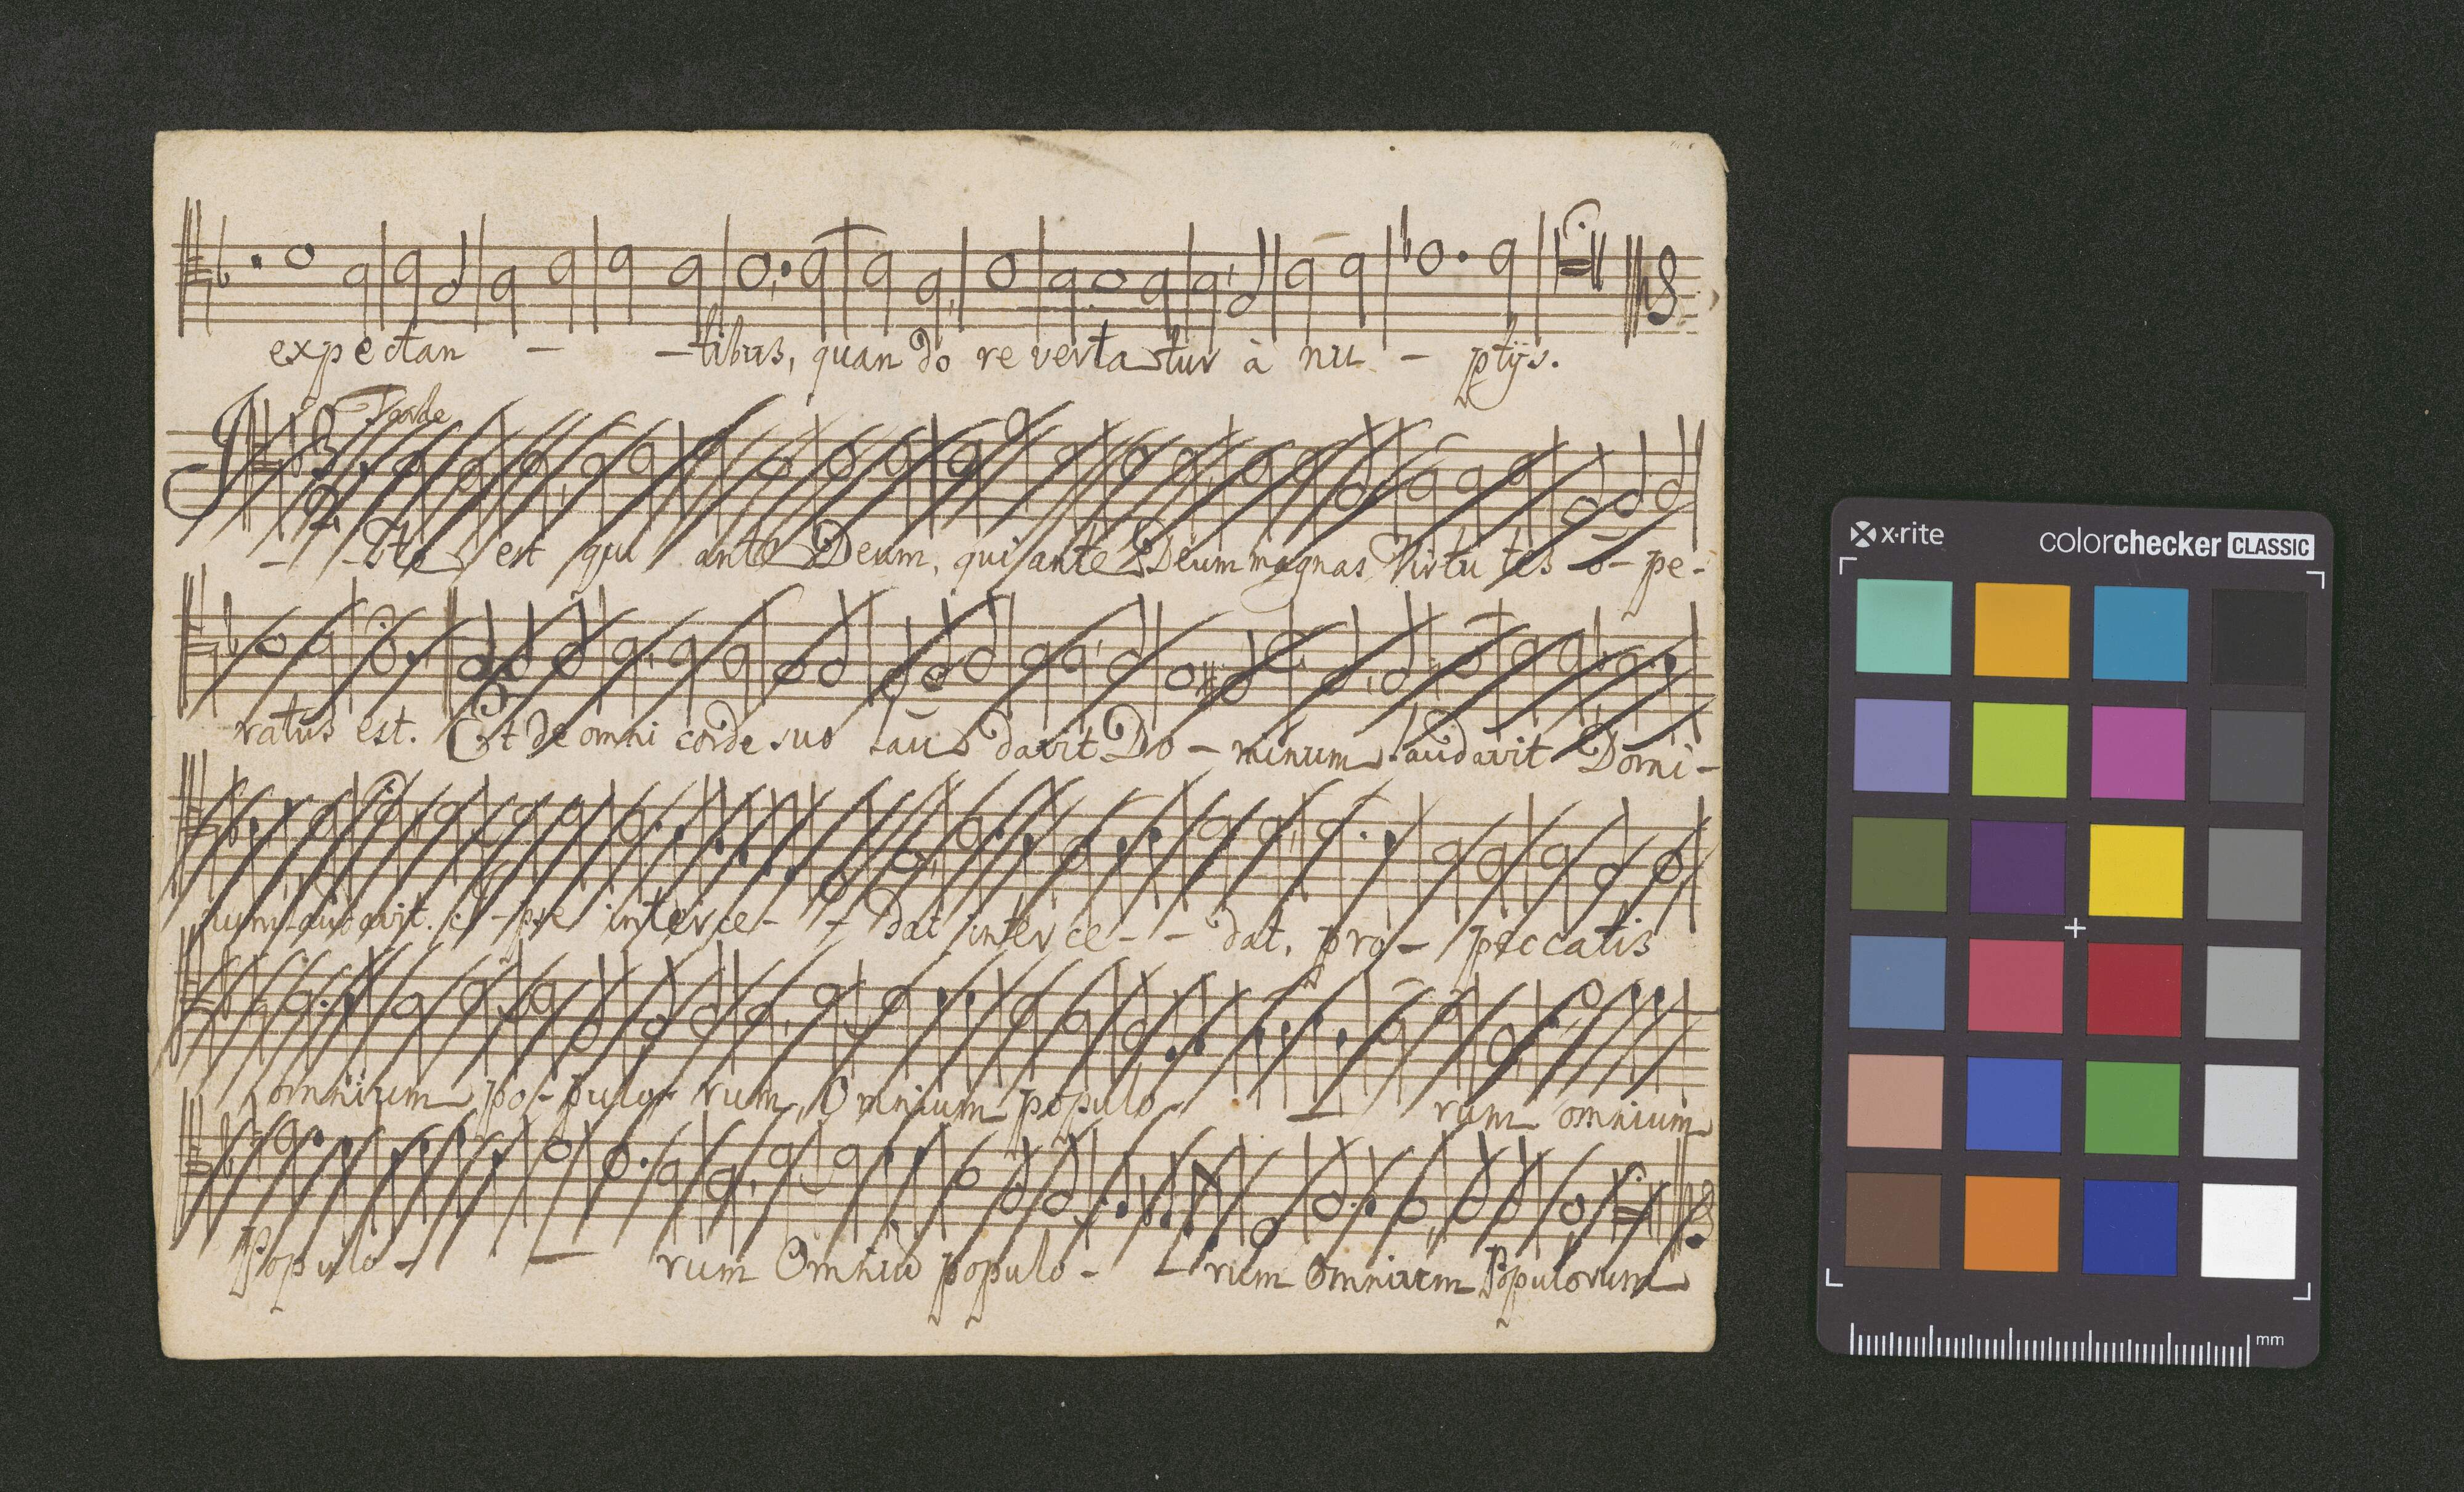 expectan - - tibus, quan do re vertatur à nu - ptijs.
Tarde
- - Iste est qui ante Deum, qui ante Deum magnas Virtu tes o - pe-
ratus est. Et de omni corde suo lau davit Do - minum laudavit Domi-
num laudavit. i - pse interce - - dat interce - - dat, pro - peccatis
omnium po - pulo - rum, Omnium populo - - rum omnium
Populo - - rum Omniū populo - - rum Omnium Populorum
x·rite
colorchecker CLASSIC
mm